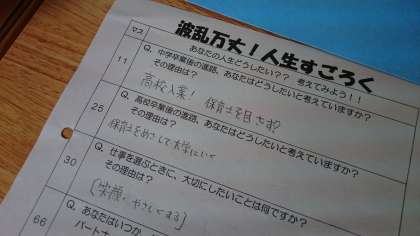 波乱万丈！人生すごろく
マス
あなたの人生どうしたい？？ 考えてみよう！！
11
Q. 中学卒業後の進路、あなたはどうしたいと考えていますか？
その理由は？
高校入業！ 保育士を目さす？
25
Q. 高校卒業後の進路、あなたはどうしたいと考えていますか？
その理由は？
保育士をめさして大学にいく
30
Q. 仕事を選ぶときに、大切にしたいことは何ですか？
その理由は？
笑顔、やさしさ
66
Q. あなたはいつか
パートナ